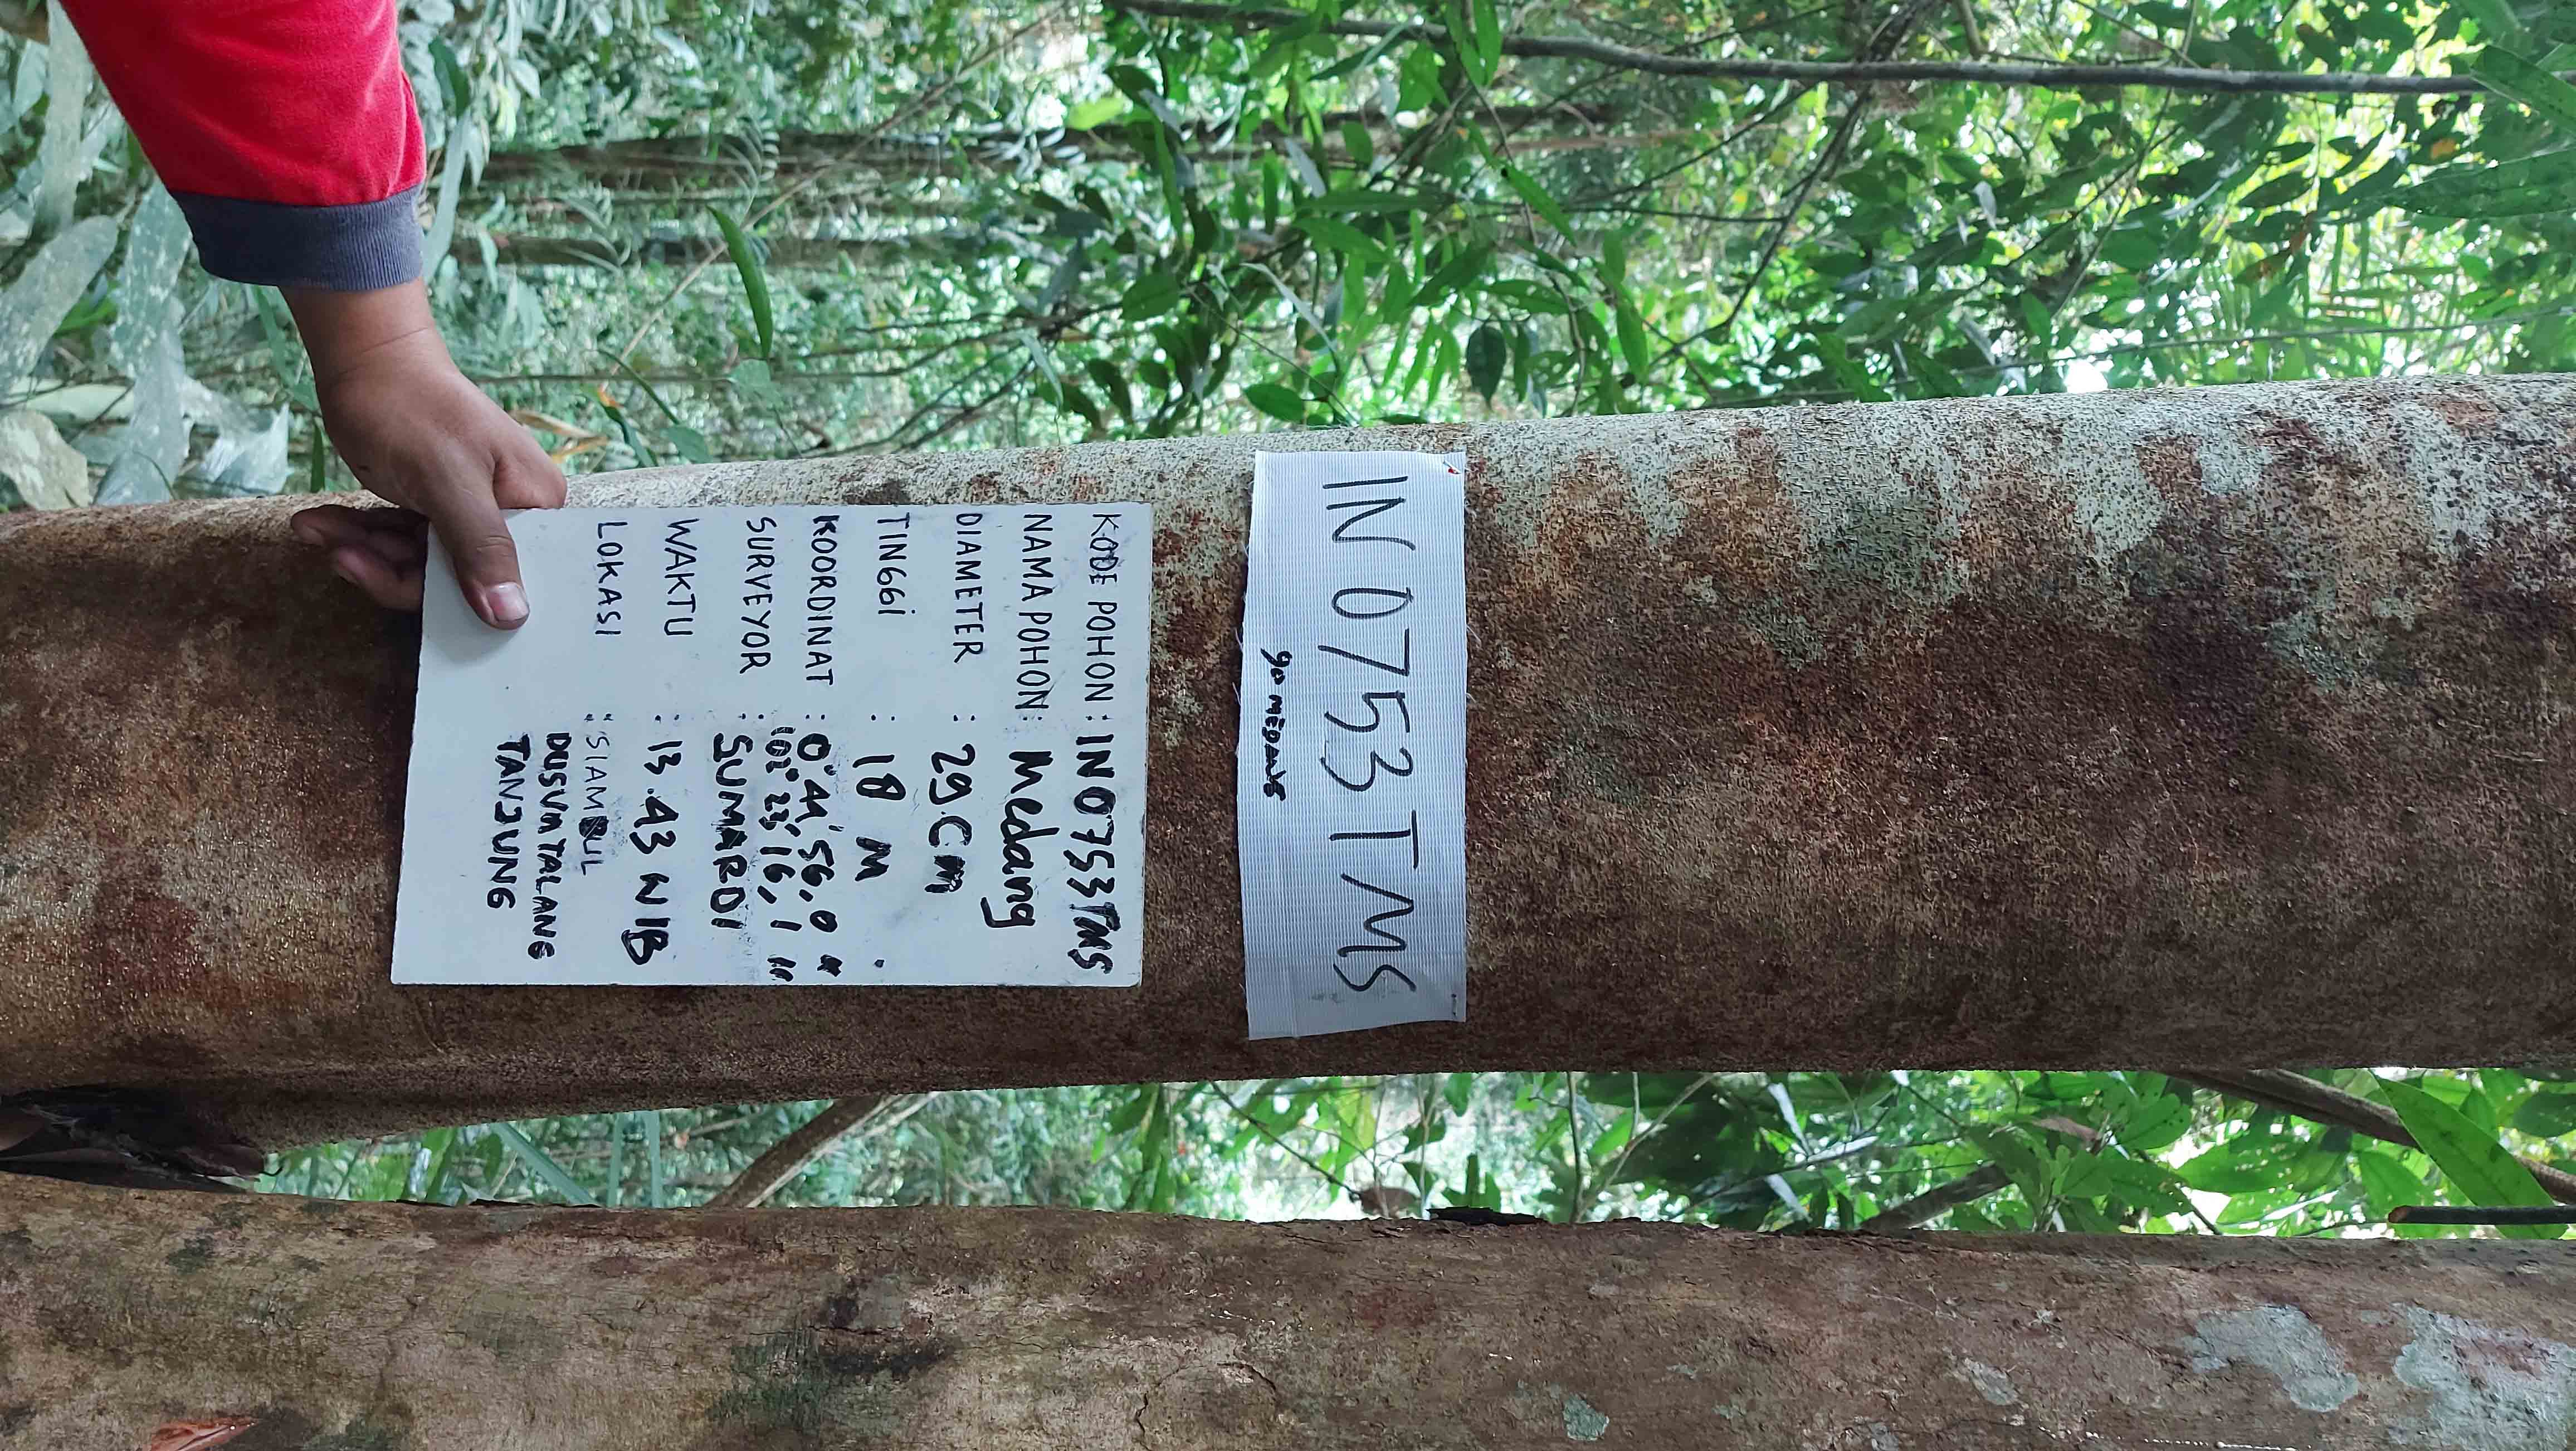 IN 0753 TMS
90 MEDANG
KODE POHON : IN0753TMS
NAMA POHON : Medang
DIAMETER : 29.Cm
TINGGI : 18 M
KOORDINAT : 0°44'56,0"
102°23'16,1"
SURVEYOR : SUMARDI
WAKTU : 13.43 WIB
LOKASI : SIAMBUL
DUSUN TALANG
TANJUNG